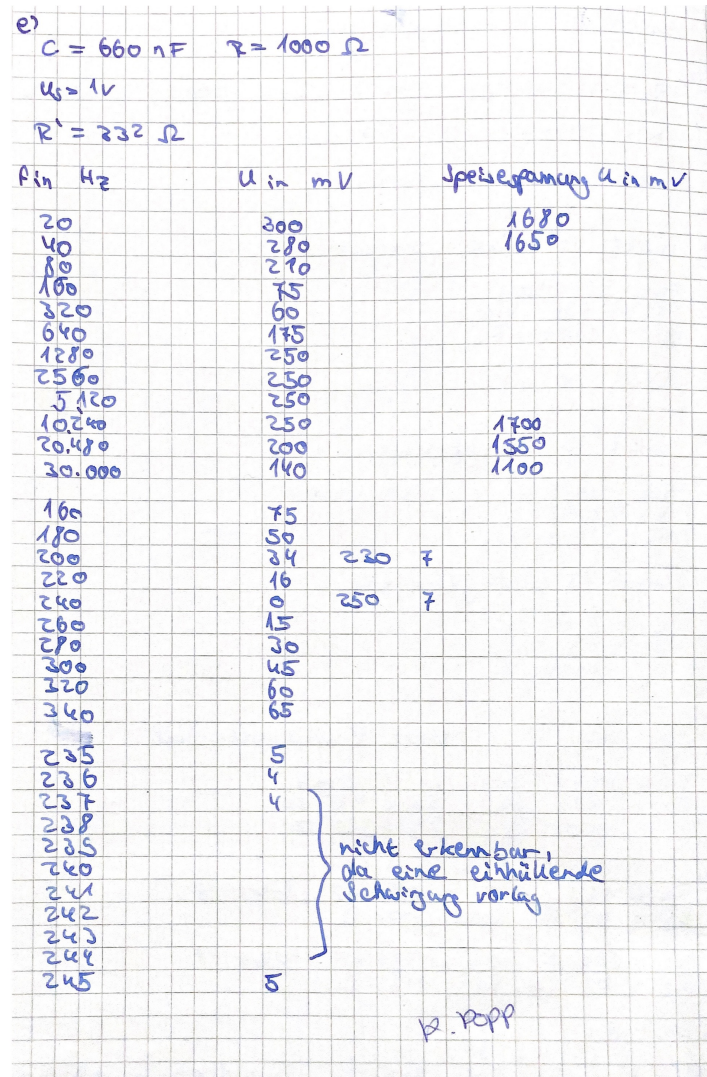 e)
C = 660 nF R = 1000 Ω
Us = 1V
R' = 332 Ω
f in Hz U in mV Speisespannung U in mV
20 300 1680
40 280 1650
80 210
160 75
320 60
640 175
1280 250
2560 250
5.120 250
10.240 250 1700
20.480 200 1550
30.000 140 1100
160 75
180 50
200 34 230 7
220 16
240 0 250 7
260 15
280 30
300 45
320 60
340 65
235 5
236 4
237 4
238
239 nicht erkennbar,
240 da eine einhüllende
241 Schwingung vorlag
242
243
244
245 5
R. Popp